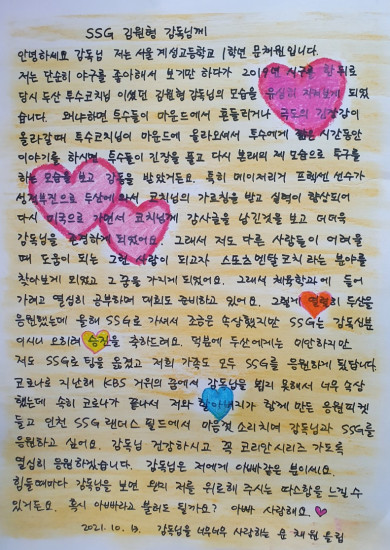 SSG 김원형 감독님께!
안녕하세요 감독님 저는 서울 계성고등학교 1학년 문채원입니다.
저는 단순히 야구를 좋아해서 보기만 하다가 2019년 시구를 한 뒤로
당시 두산 투수코치님 이셨던 김원형 감독님의 모습을 유심히 지켜보게 되었
습니다. 왜냐하면 투수들이 마운드에서 흔들리거나 극도의 긴장감이
올라갈때 투수코치님이 마운드에 올라오셔서 투수에게 짧은 시간동안
이야기를 하시면 투수들이 긴장을 풀고 다시 본래의 제 모습으로 투구를
하는 모습을 보고 감동을 받았거든요. 특히 메이저리거 프렉센 선수가
성적부진으로 두산에 와서 코치님의 가르침을 받고 실력이 향상되어
다시 미국으로 가면서 코치님께 감사글을 남긴것을 보고 더더욱
감독님을 존경하게 되었어요. 그래서 저도 다른 사람들이 어려울
때 도움이 되는 그런 사람이 되고자 스포츠멘탈코치라는 분야를
찾아보게 되었고 그 꿈을 가지게 되었어요. 그래서 체육학과에 들어
가려고 열심히 공부하며 대회도 준비하고 있어요. 그렇게 열렬히 두산을
응원했는데 올해 SSG로 가셔서 조금은 속상했지만 SSG는 감독신분
이시니 오히려 승진을 축하드려요. 덕분에 두산에게는 미안하지만
저도 SSG로 팀을 옮겼고 저희 가족도 모두 SSG를 응원하게 됐답니다.
코로나로 지난해 KBS 거위의 꿈에서 감독님을 뵙지 못해서 너무 속상
했는데 속히 코로나가 끝나서 저와 할아버지가 함께 만든 응원피켓
들고 인천 SSG 랜더스 필드에서 마음껏 소리치며 감독님과 SSG를
응원하고 싶어요. 감독님 건강하시고 꼭 코리안시리즈 가도록
열심히 응원하겠습니다. 감독님은 저에게 아빠같은 분이세요.
힘들때마다 감독님을 보면 왠지 저를 위로해 주시는 따스함을 느낄 수
있거든요. 혹시 아빠라고 불러도 될까요? 아빠 사랑해요.
2021. 10. 감독님을 너무너무 사랑하는 문채원 올림